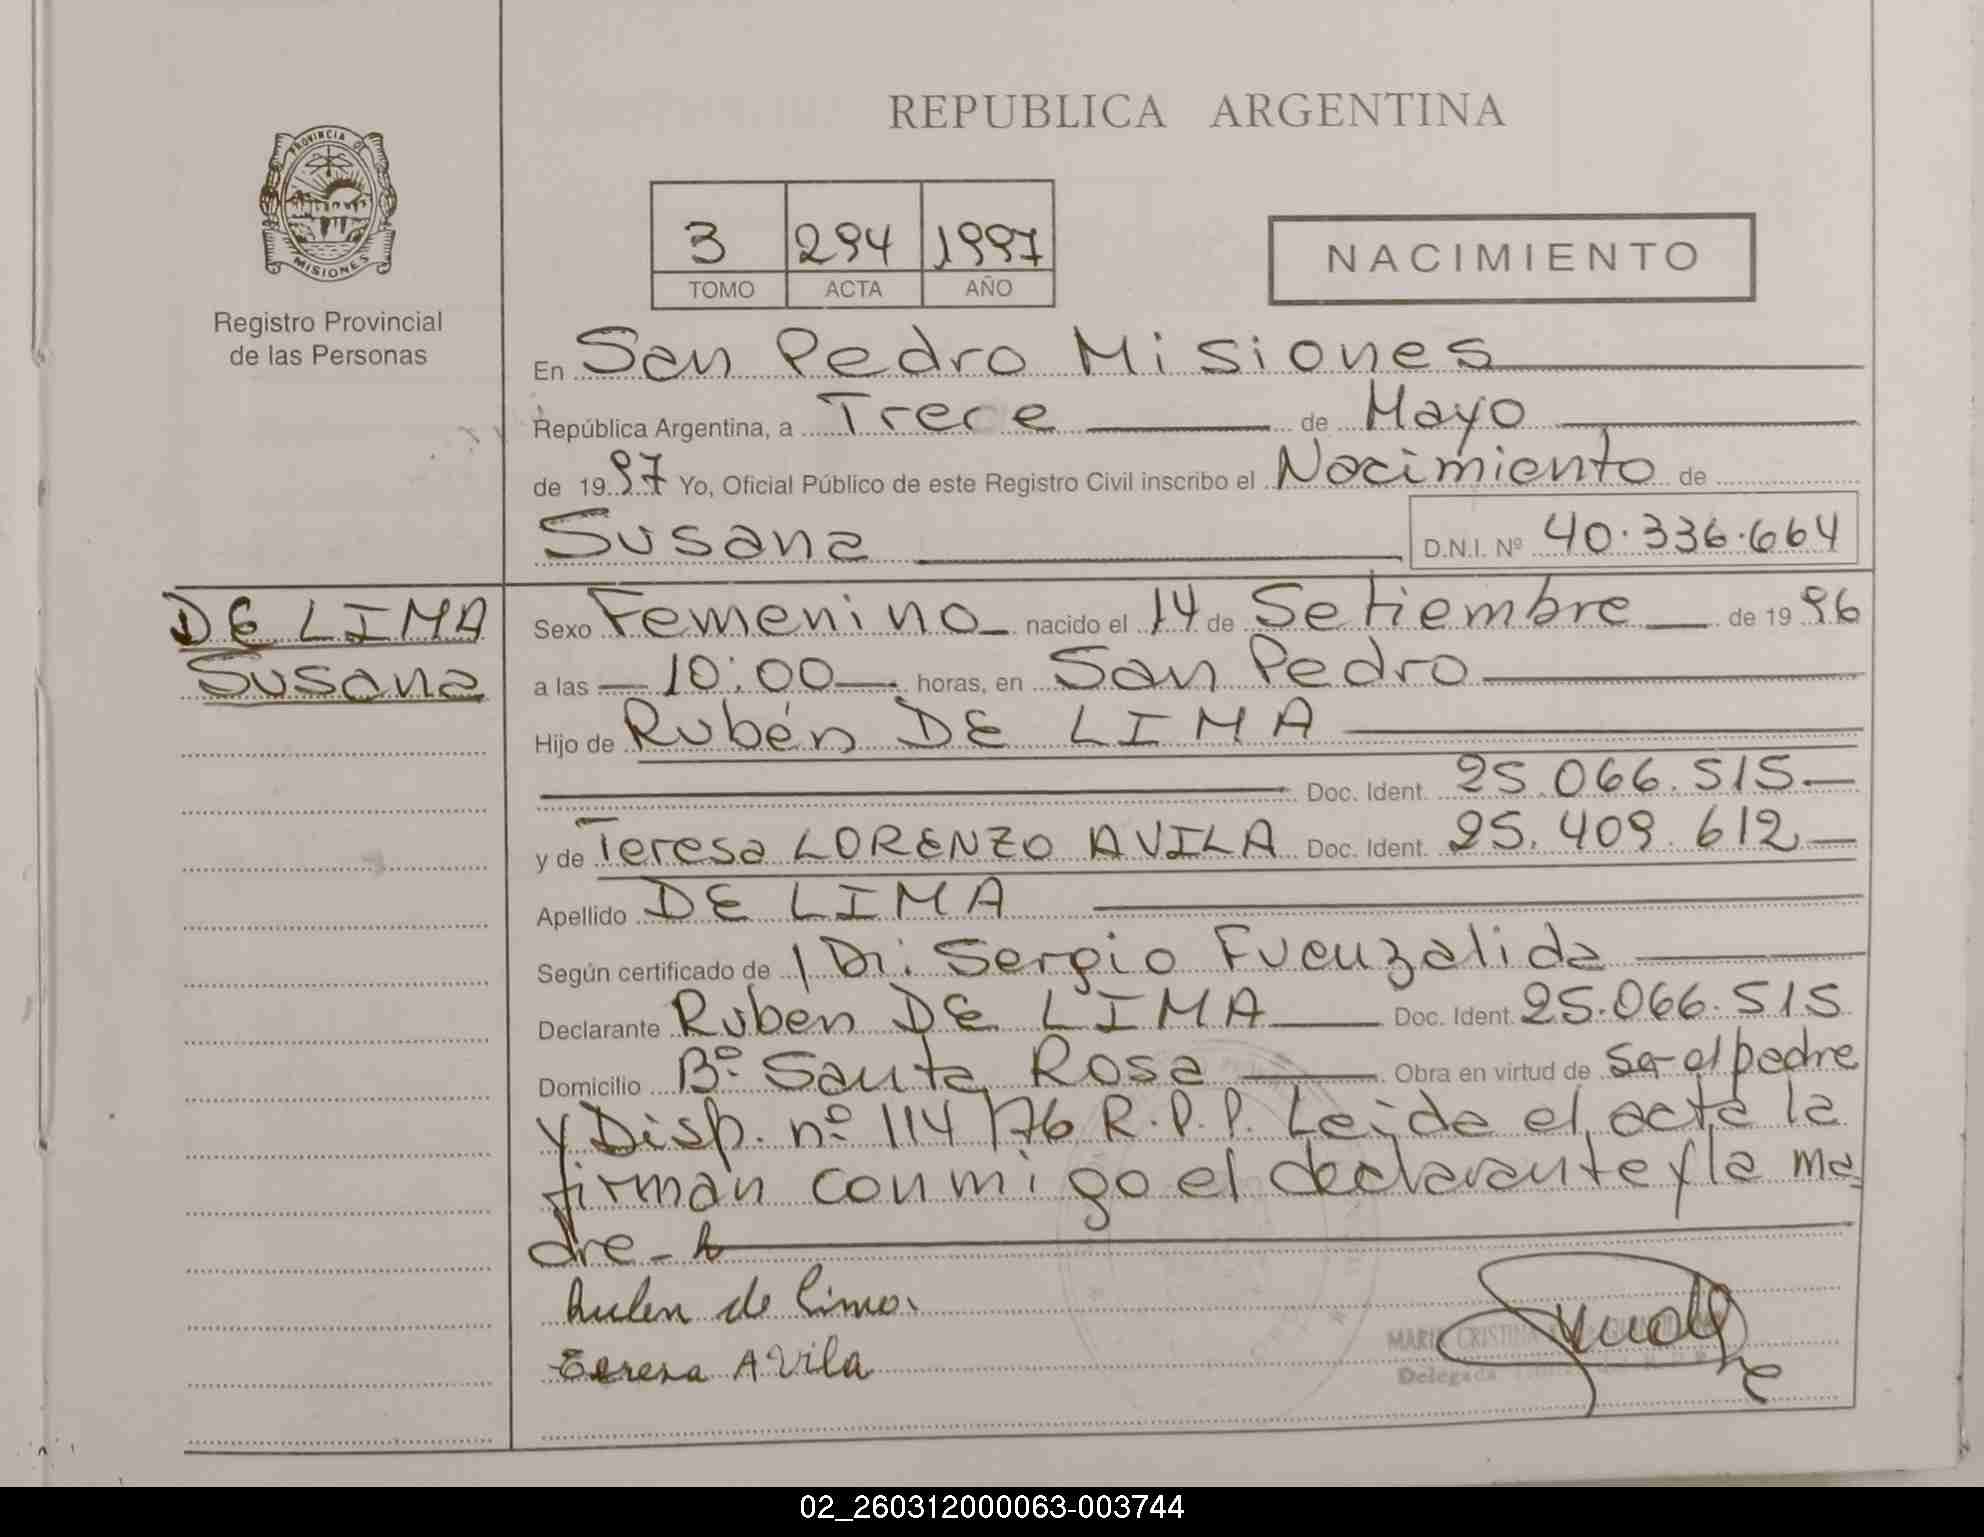 REPUBLICA ARGENTINA
PROVINCIA DE
MISIONES
Registro Provincial
de las Personas
3 294 1997
TOMO ACTA AÑO
NACIMIENTO
En San Pedro Misiones
República Argentina, a Trece de Mayo
de 1997 Yo, Oficial Público de este Registro Civil inscribo el Nacimiento de
Susana D.N.I. Nº 40.336.664
DE LIMA
Susana
Sexo Femenino nacido el 14 de Setiembre de 1996
a las 10:00 horas, en San Pedro
Hijo de Rubén DE LIMA
Doc. Ident. 25.066.515
y de Teresa LORENZO AVILA Doc. Ident. 25.409.612
Apellido DE LIMA
Según certificado de Sergio Fuenzalida
Declarante Rubén DE LIMA Doc. Ident. 25.066.515
Domicilio Bº Santa Rosa Obra en virtud de el padre
y Disp. nº 114/76 R.P.P. Leida el acta la
firman conmigo el declarante y la ma
dre
Ruben de Lima
Teresa Avila
MARIA CRISTINA
Delegada
02_260312000063-003744